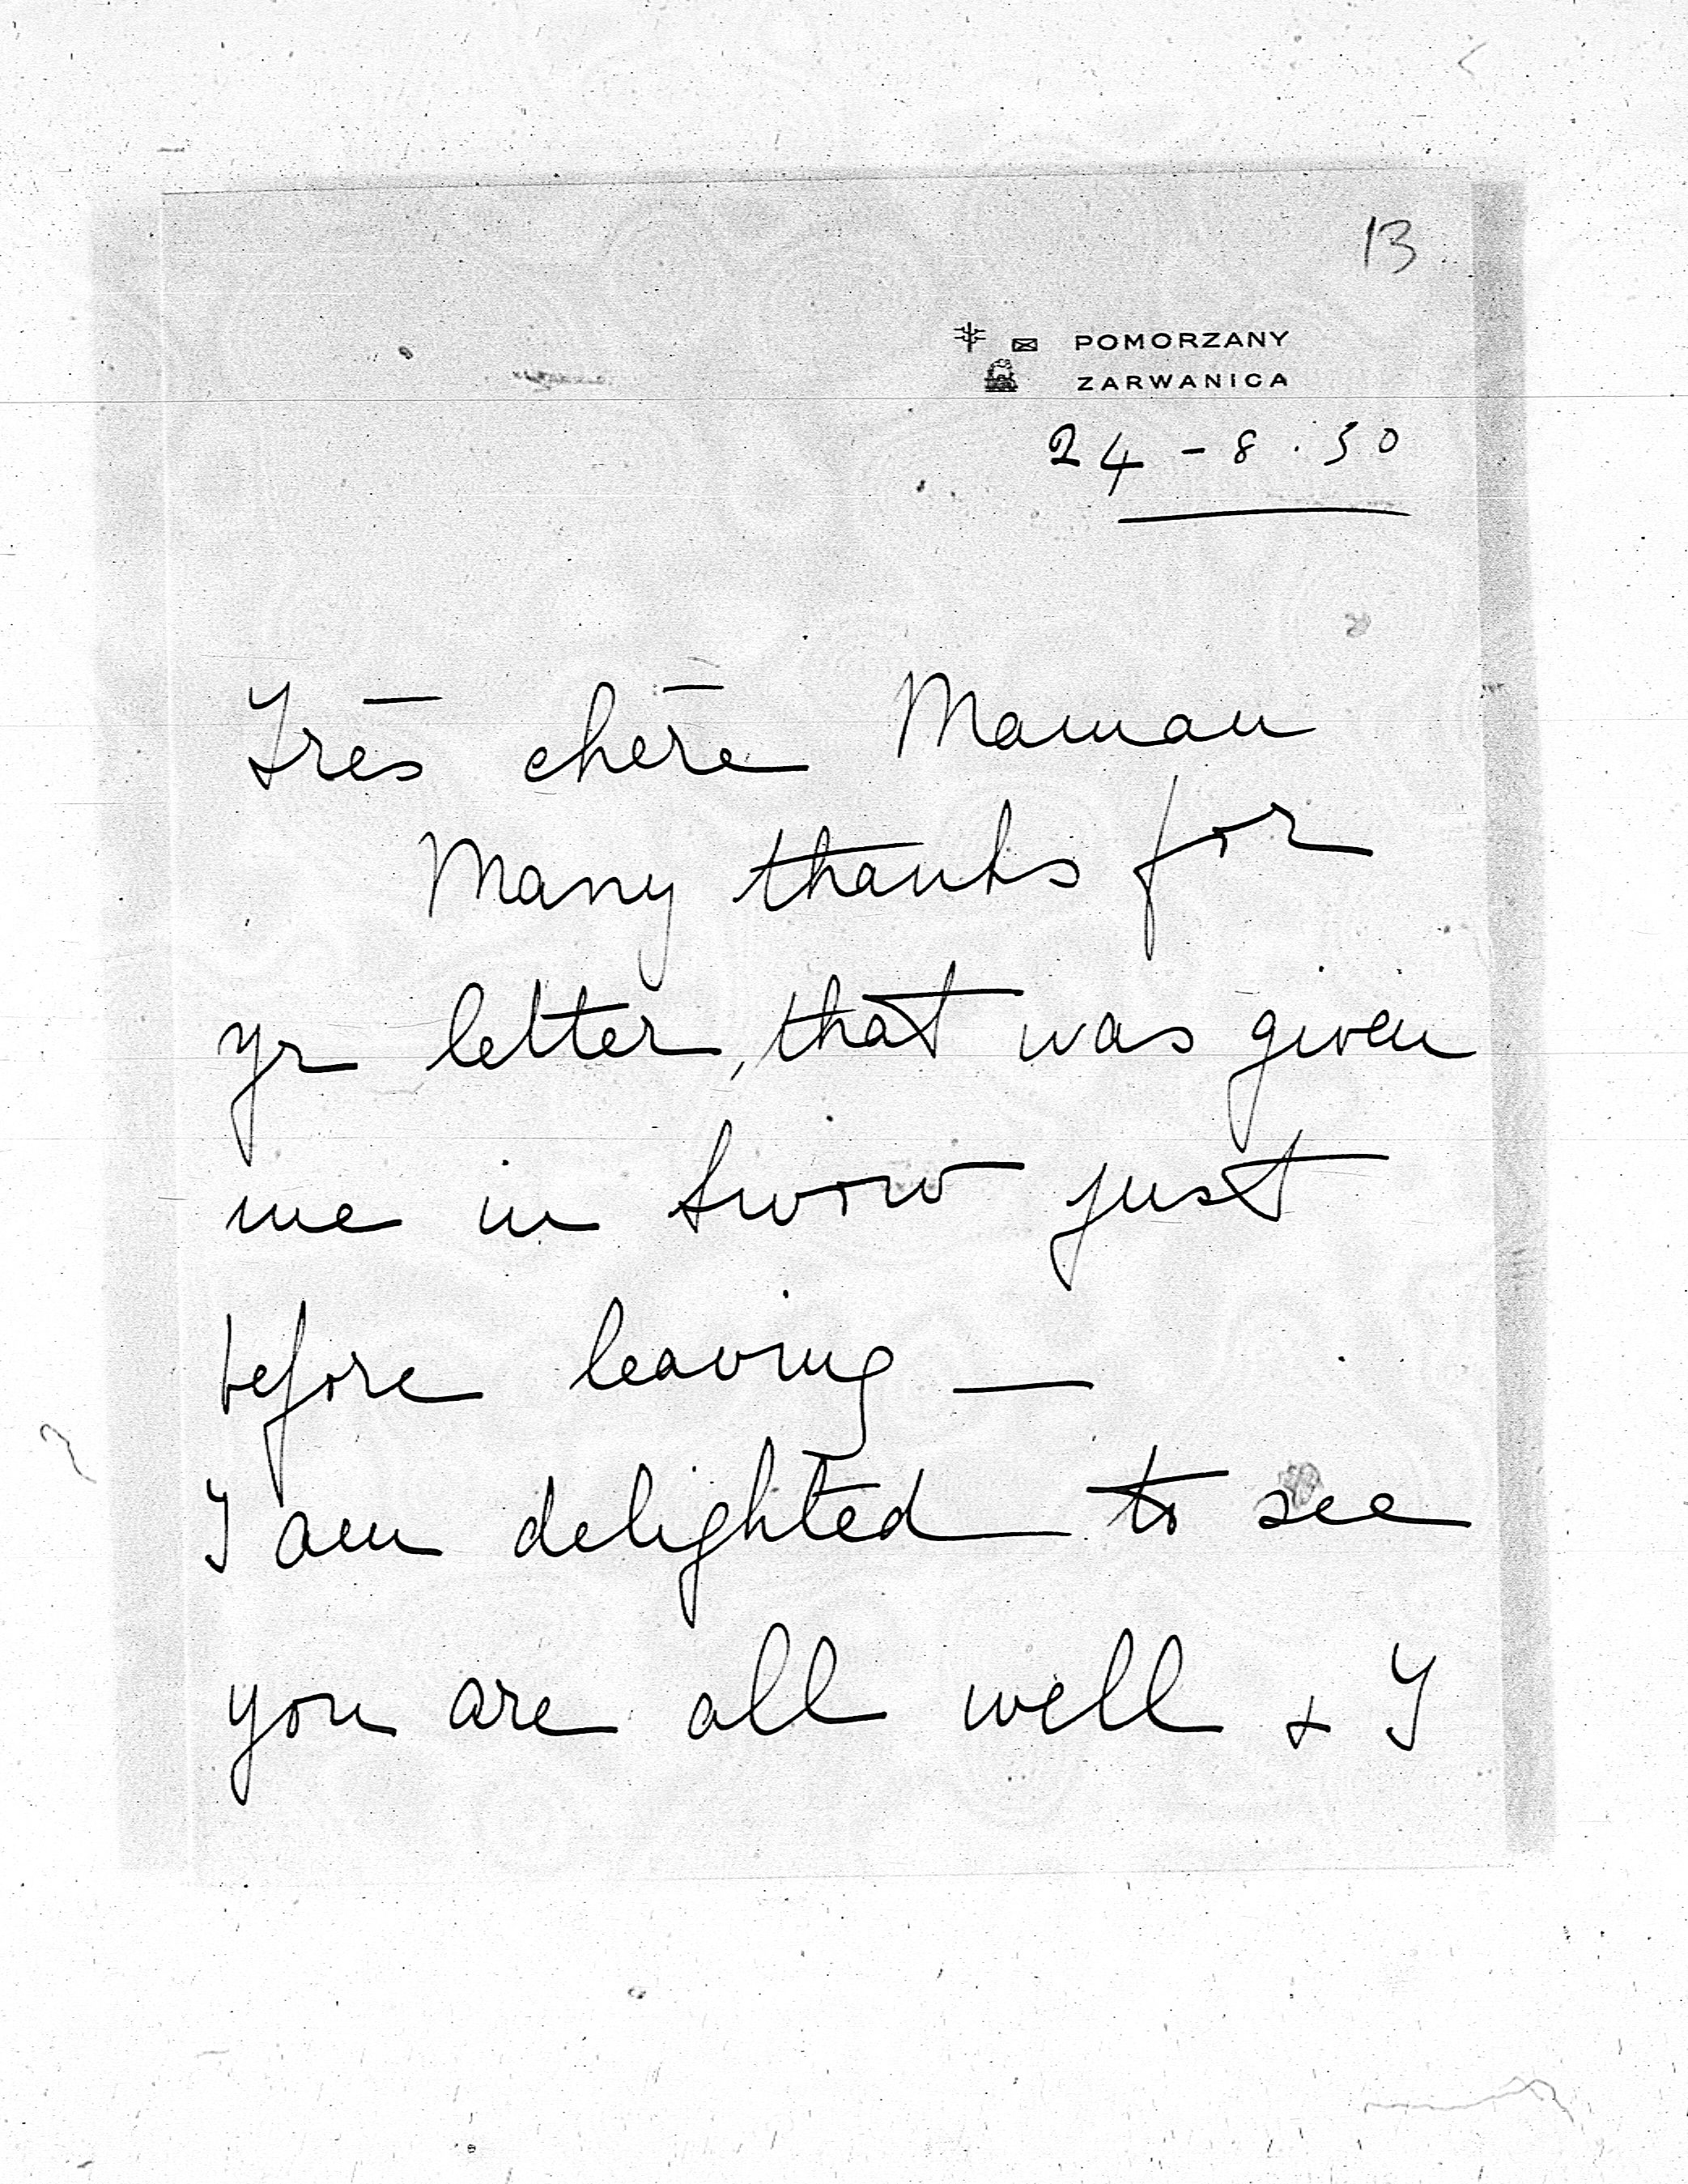 13
POMORZANY
ZARWANICA
24-8.30
Très chère Maman
Many thanks for
yr letter, that was given
me in Lwow just
before leaving —
I am delighted to see
you are all well + I